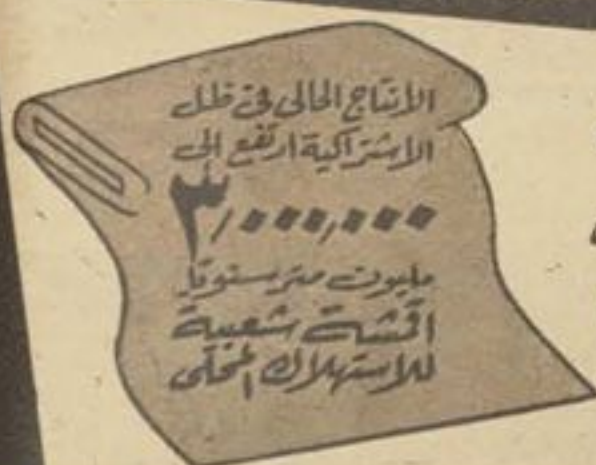 الانتاج الحالى فى ظل
الاشتراكية ارتفع الى
٣/٠٠٠,٠٠٠
مليون متر سنويا
اقمشة شعبية
للاستهلاك المحلى